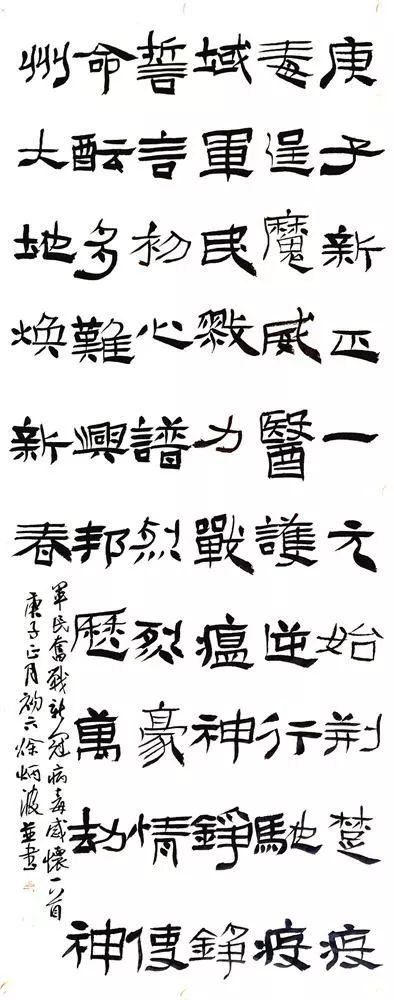 庚子新正一元始荆楚疫
毒逞魔威醫護逆行馳疫
域軍民戮力戰瘟神錚錚
誓言初心譜烈烈豪情使
命酝多難興邦歷萬劫神
州大地焕新春
軍民奮戰新冠病毒感懷一首
庚子正月初六徐炳波並書